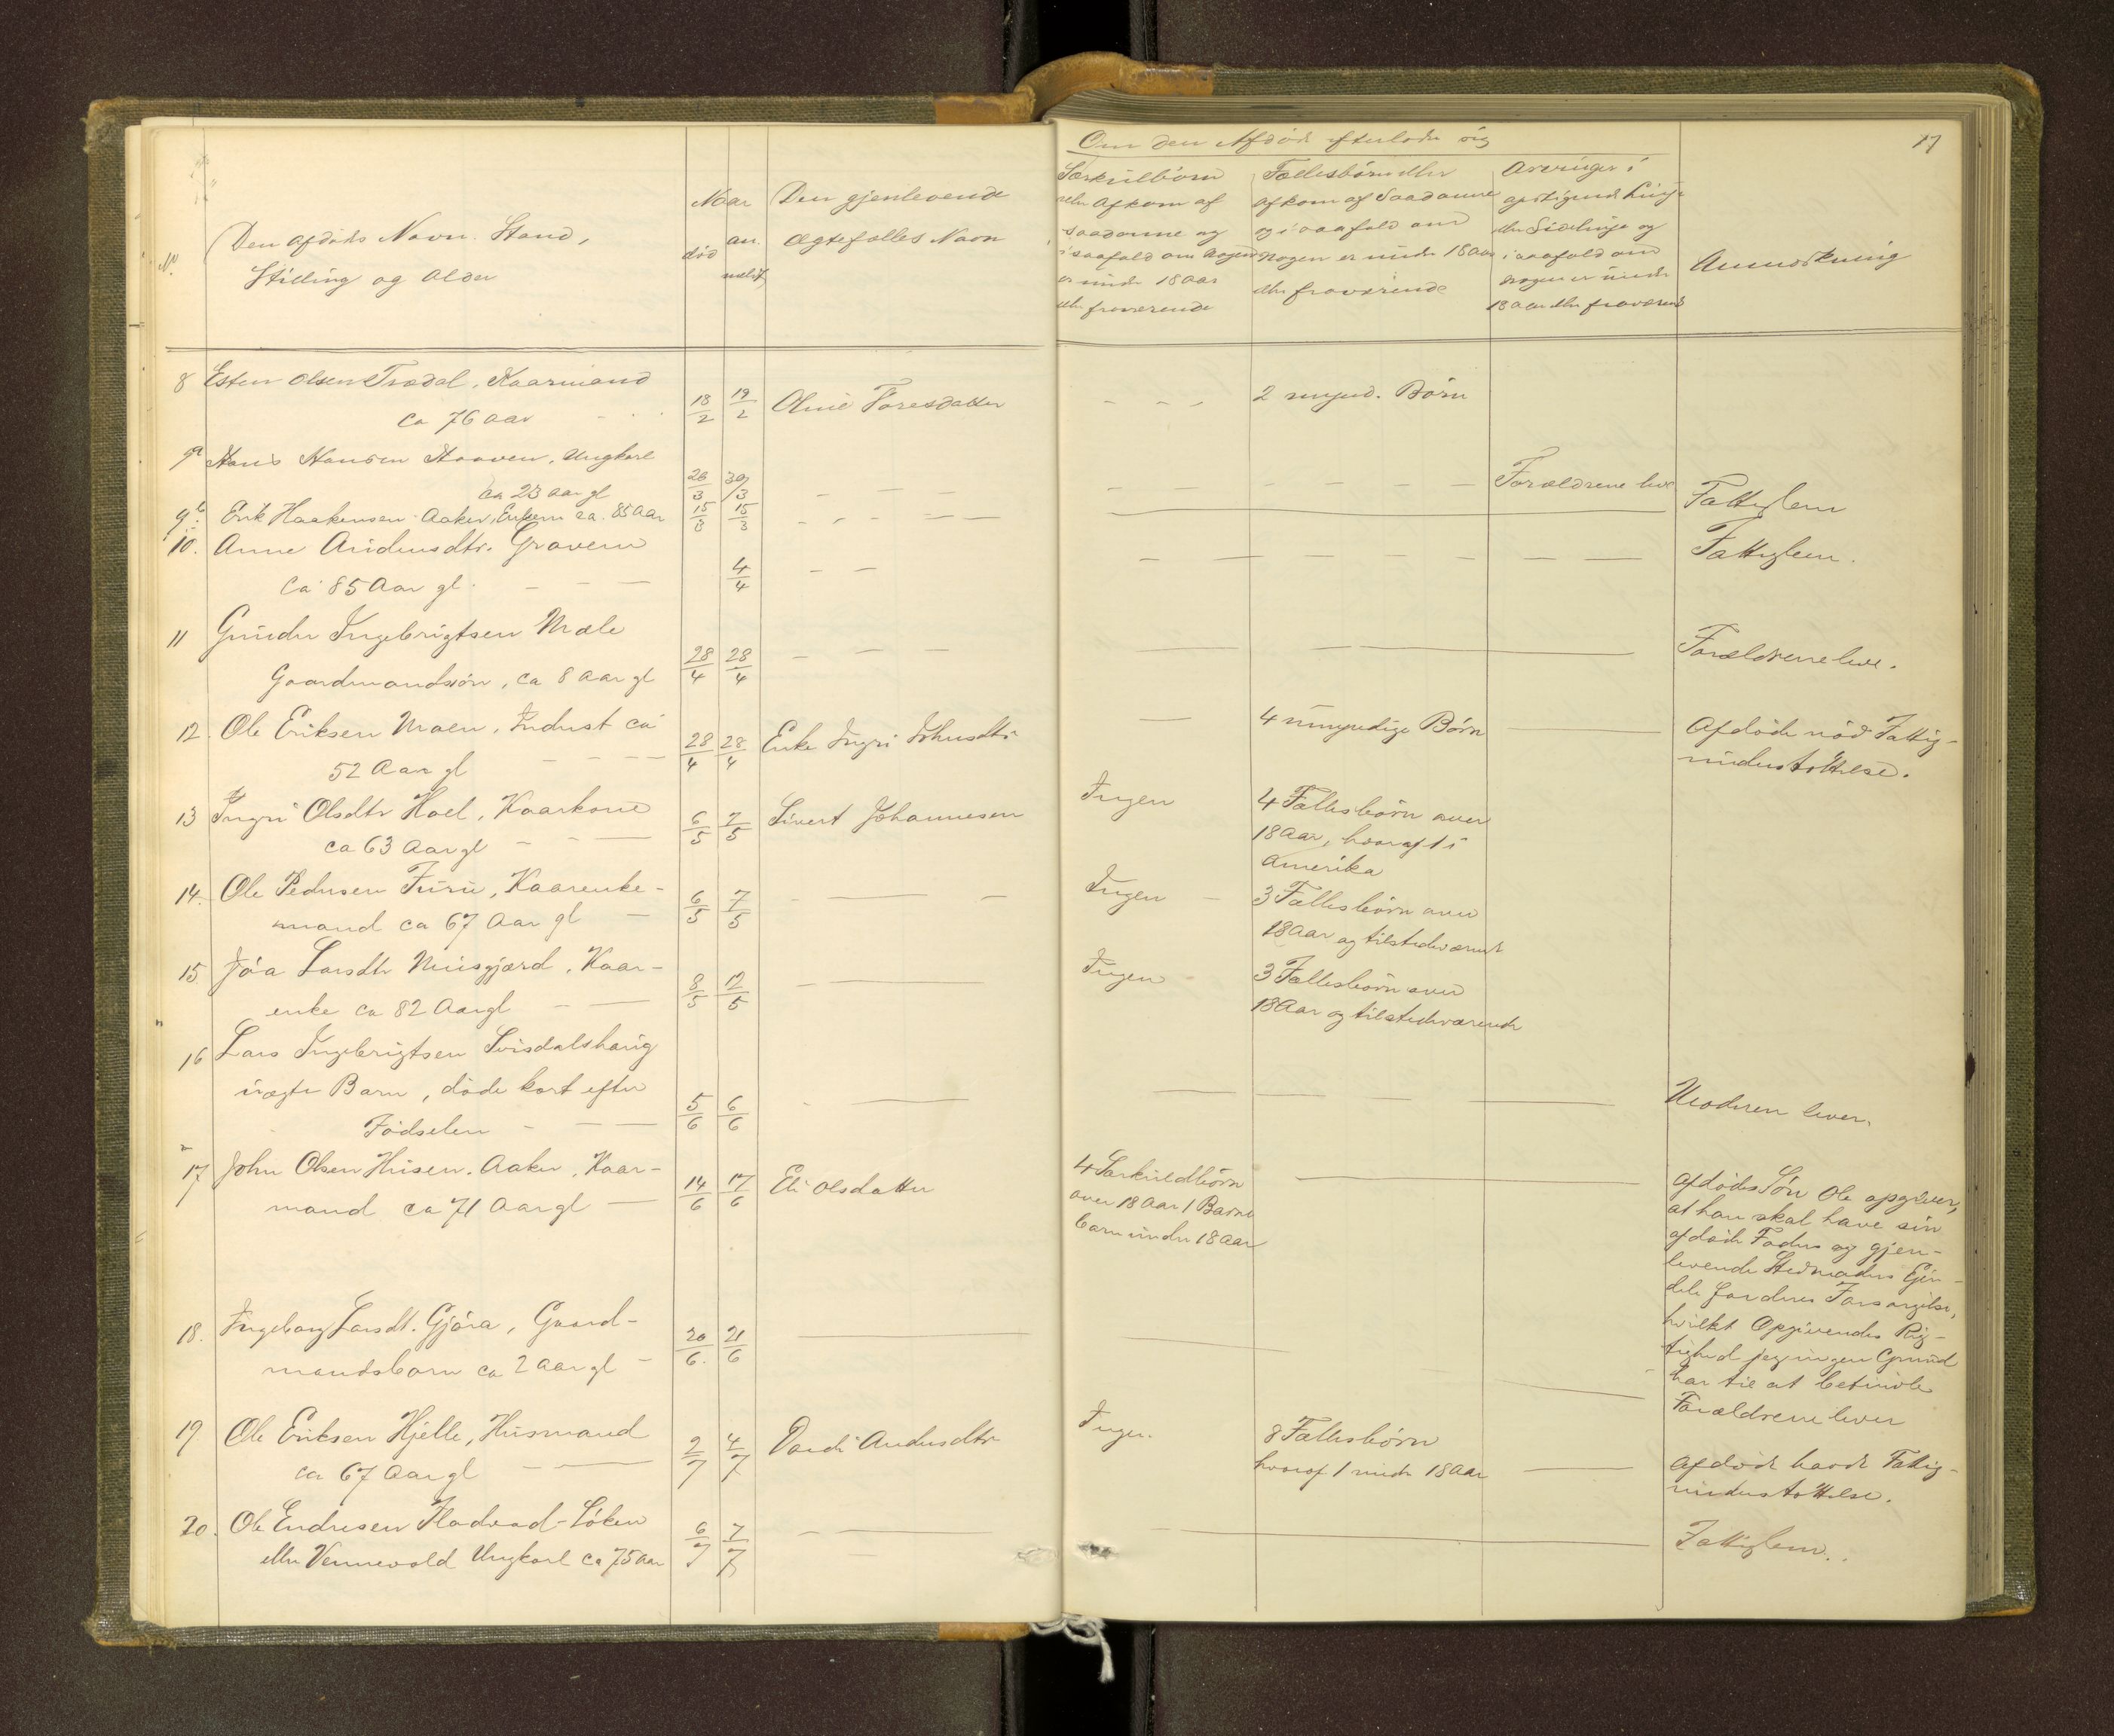 17
Om den Afdöde efterlader sig
No
Den afdödes Navn. Stand,
Stilling og Alder
Naar
död
an-
meldt
Den gjenlevende
Ægtefælles Navn
Særkulbörn
eller Afkom af
saadanne og
i saafald om nogen
er under 18 Aar
eller fraværende
Fællesbörn eller
Afkom af Saadanne
og i saafald om
nogen er under 18 Aar
eller fraværende
Arvinger i
opstigende Linje
eller Sidelinje og
i saafald om
nogen er under
18 Aar eller fraværende
Anmærkning
8 Esten Olsen Trædal, Kaarmand
ca 76 Aar - 18/2 19/2 Oline Toresdatter - - - 2 umynd. Börn
9a Hans Hansen Haaven, Ungkarl
ca 23 Aar gl 26/3 30/3 - - - Forældrene leve
9b. Erik Haakensen Aaker, Enkem ca. 85 Aar 15/3 15/3 - - - Fattiglem
10. Anne Andersdtr. Gravem
Ca 85 Aar gl. - - - 4/4 - - Fattiglem.
11 Gunder Ingebrigtsen Mæle
Gaardmandssön, ca 8 Aar gl 28/4 28/4 - - - Forældrene leve.
12. Ole Eriksen Moen, Inderst ca
52 Aar gl - - - 28/4 28/4 Enke Ingri Johnsdtr - 4 umyndige Börn - Afdöde nöd Fattig-
understöttelse.
13 Ingri Olsdtr Hoel, Kaarkone
ca 63 Aar gl - - 6/5 7/5 Sivert Johannesen Ingen 4 Fællesbörn over
18 Aar, hvoraf 1 i
Amerika
14. Ole Pedersen Furu, Kaarenke-
mand ca 67 Aar gl - 6/5 7/5 - - - Ingen - 3 Fællesbörn over
18 Aar og tilstedeværende
15 Jöa Larsdtr Musgjærd, Kaar-
enke ca 82 Aar gl - - 8/5 12/5 - - Ingen - 3 Fællesbörn over
18 Aar og tilstedeværende
16 Lars Ingebrigtsen Svisdalshaug
uægte Barn, döde kort efter
Födselen - - - 5/6 6/6 - - - Moderen lever.
17 John Olsen Husen. Aaker, Kaar-
mand ca 71 Aar gl - 14/6 17/6 Eli Olsdatter 4 Særkuldbörn
over 18 Aar 1 Barne
barn under 18 Aar
Afdödes Sön Ole opgiver,
at han skal have sin
afdöde Faders og gjen-
levende Stedmoders Ejen-
dele for deres Forsörgelse,
hvilket Opgivendes Rig-
tighed jeg ingen Grund
har til at betvivle
18. Ingeborg Larsdt. Gjöra, Gaard-
mandsbarn ca 2 Aar gl - 20/6. 21/6 - - - Forældrene lever
19. Ole Eriksen Hjelle, Husmand
ca 67 Aar gl - - 2/7 4/7 Dordi Andersdtr Ingen. 8 Fællesbörn
hvoraf 1 under 18 Aar - Afdöde havde Fattig-
understöttelse.
20. Ole Endresen Fladvad-Löken
eller Vennevold Ungkarl ca 75 Aar 6/7 7/7 - - - Fattiglem.